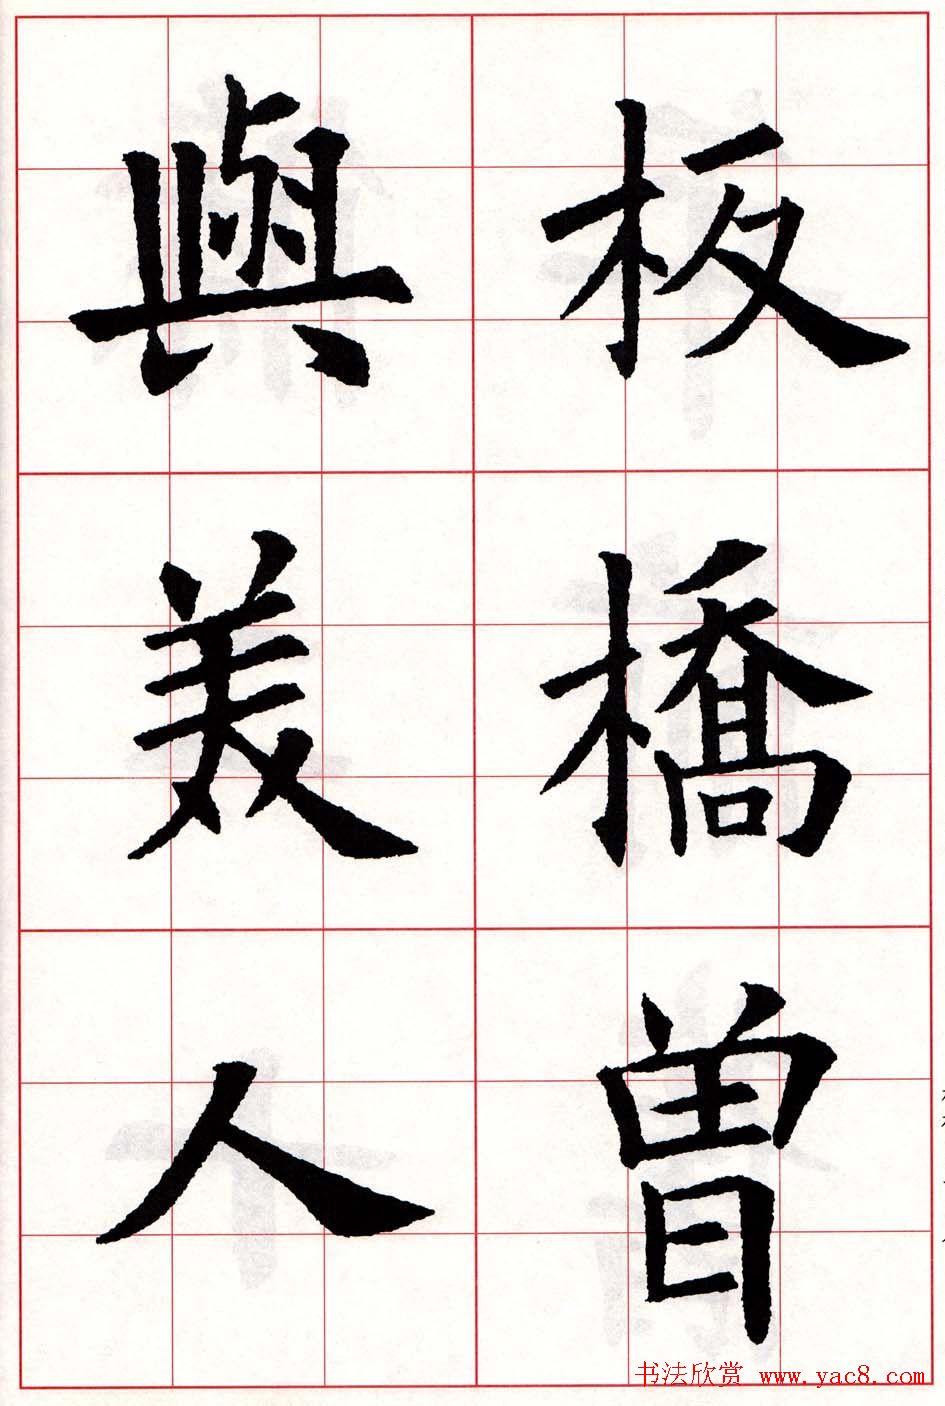 板橋曾
與美人
书法欣赏 www.yac8.com